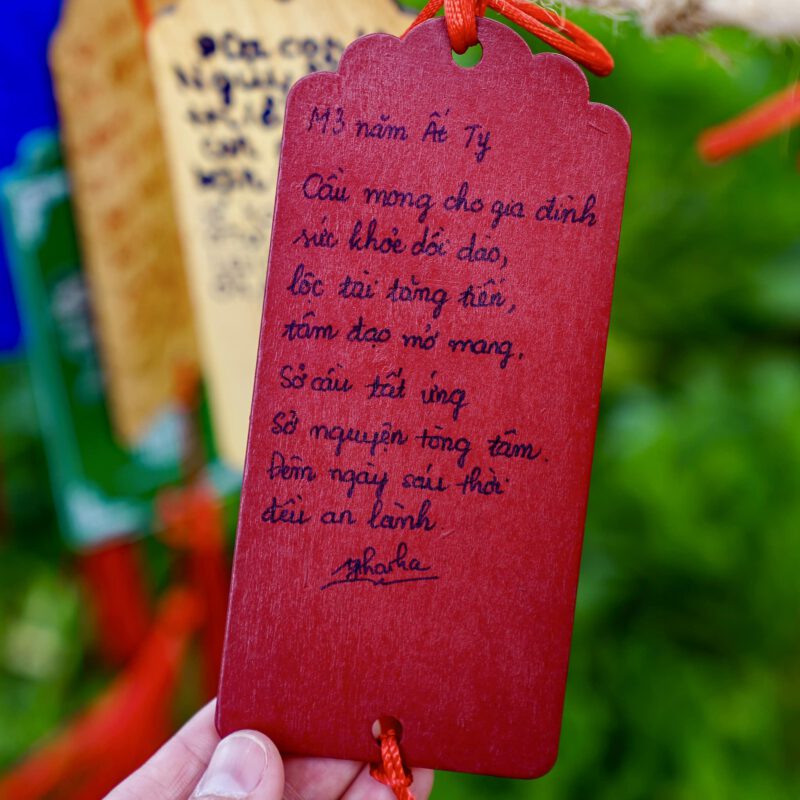 M3 năm Ất Tỵ
Cầu mong cho gia đình
sức khoẻ dồi dào,
lộc tài tăng tiến,
tâm đạo mở mang.
Sở cầu tất ứng
Sở nguyện tòng tâm.
Đêm ngày sáu thời
đều an lành